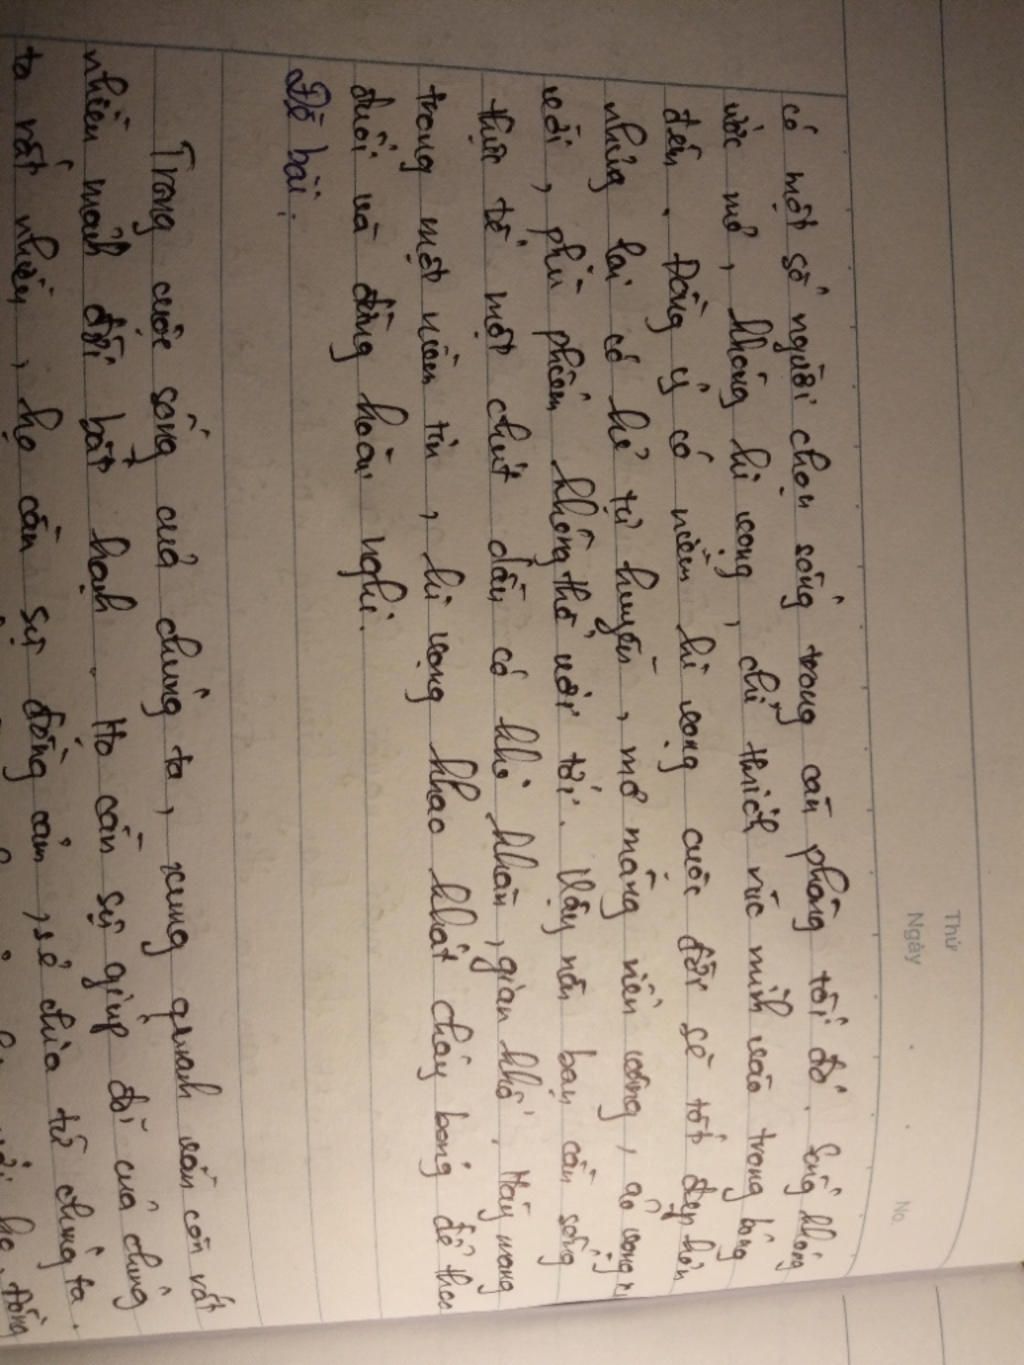 Thứ
Ngày
No.
có một số người chọn sống trong căn phòng tối đó. Sống không
ước mơ, không hi vọng, chỉ thích rúc mình vào trong bóng
đêm. Đồng ý có niềm hi vọng cuộc đời sẽ tốt đẹp hơn
nhưng lại có kẻ tự huyễn, mơ mộng viển vông, ảo vọng
vời, phù phiếm không thể với tới. Vậy nên bạn cần sống
thực tế một chút dẫu có khó khăn, gian khổ. Hãy mang
trong một niềm tin, hi vọng khao khát cháy bỏng để theo
đuổi và đừng hoài nghi.
Đề bài.
Trong cuộc sống của chúng ta, xung quanh vẫn còn rất
nhiều mảnh đời bất hạnh. Họ cần sự giúp đỡ của chúng
ta rất nhiều, họ cần sự đồng cảm, sẻ chia từ chúng ta.